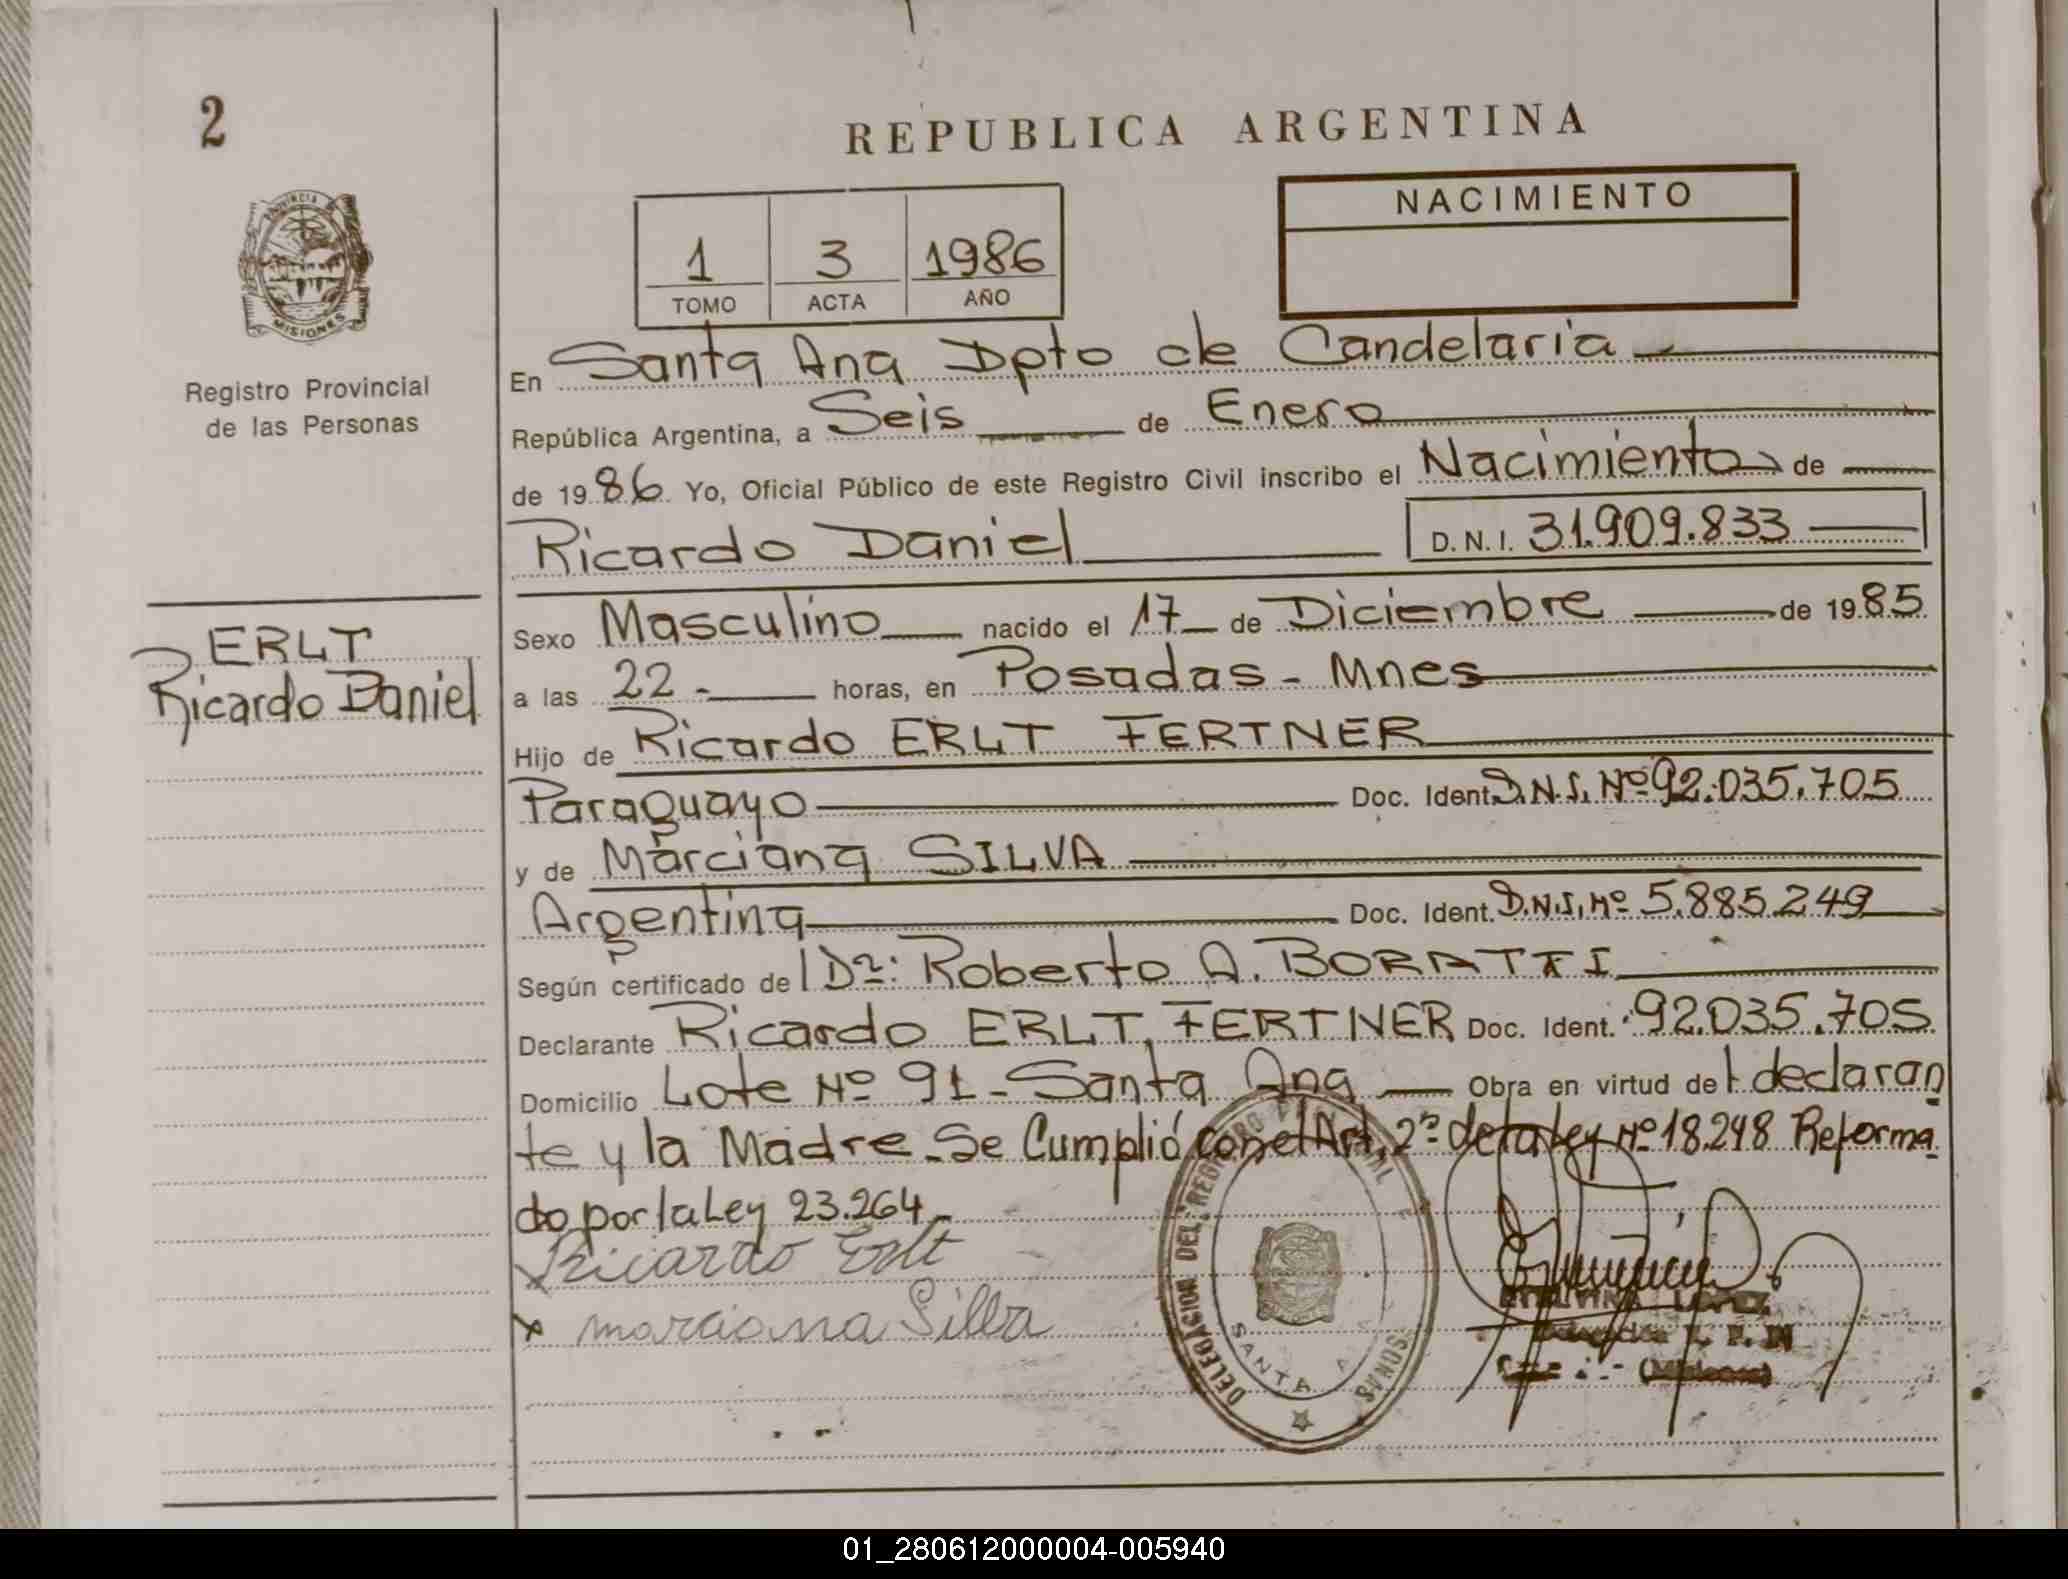 2
REPUBLICA ARGENTINA
PROVINCIA DE
MISIONES
Registro Provincial
de las Personas
1 3 1986
TOMO ACTA AÑO
NACIMIENTO
En Santa Ana Dpto de Candelaria
República Argentina, a Seis de Enero
de 1986 Yo, Oficial Público de este Registro Civil inscribo el Nacimiento de
Ricardo Daniel D.N.I. 31.909.833
ERLT
Ricardo Daniel
Sexo Masculino nacido el 17 de Diciembre de 1985
a las 22 - horas, en Posadas - Mnes
Hijo de Ricardo ERLT FERTNER
Paraguayo Doc. Ident. D.N.I. Nº 92.035.705
y de Marciana SILVA
Argentina Doc. Ident. D.N.I. Nº 5.885.249
Según certificado del Dr: Roberto A. BORATTI
Declarante Ricardo ERLT, FERTNER Doc. Ident. 92.035.705
Domicilio Lote Nº 91 - Santa Ana Obra en virtud del declaran
te y la Madre - Se Cumplió con el Art. 2º de la Ley Nº 18.248 Reforma
do por la Ley 23.264 -
Ricardo Erlt
x marciana Silba
DELEGACION DEL REGISTRO PROVINCIAL
SANTA
LOPEZ
Delegación R. P. P.
(Misiones)
01_280612000004-005940